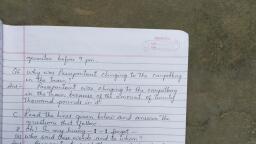 opposites before 9 pm.
(ii) Why was Passepartout clinging to the carpetbag
in the train?
Ans- Passepartout was clinging to the carpetbag
in the train because of the amount of twenty
thousand pounds in it.
C. Read the lines given below and answer the
questions that follow.
my hurry - I - I forgot -
Who said these words and to whom?